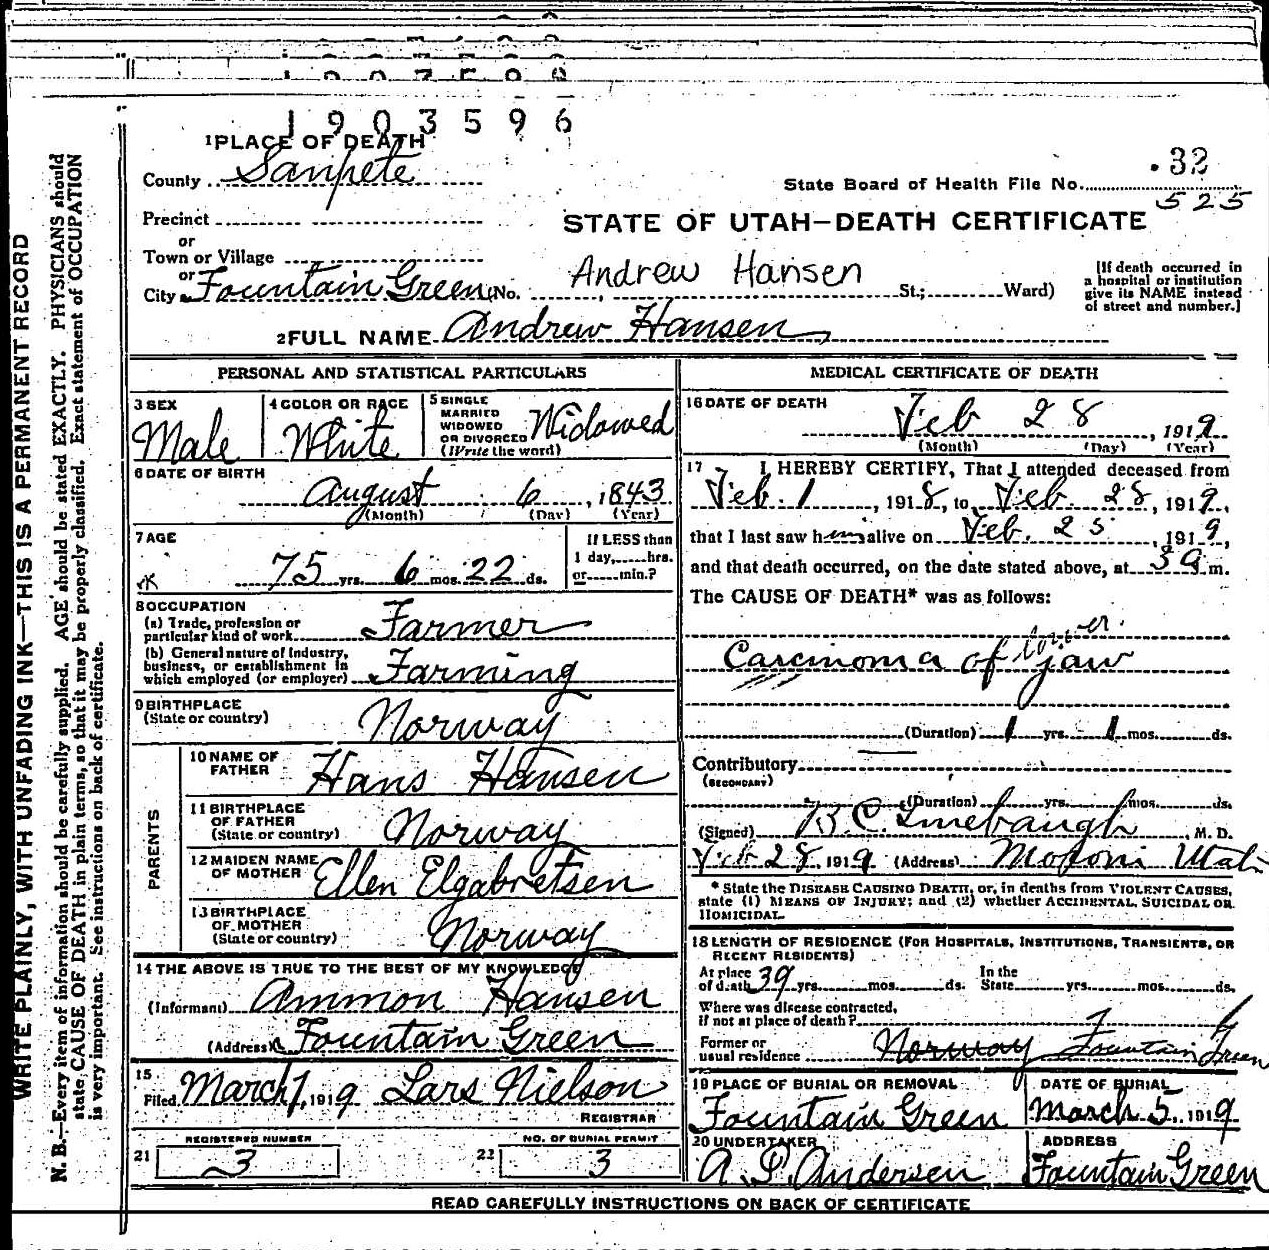 1903596
1 PLACE OF DEATH
County Sanpete
.32
State Board of Health File No. 525
Precinct
or
Town or Village
or
City Fountain Green (No. , St.; Ward)
STATE OF UTAH—DEATH CERTIFICATE
Andrew Hansen
[If death occurred in
a hospital or institution
give its NAME instead
of street and number.]
2 FULL NAME Andrew Hansen
WRITE PLAINLY, WITH UNFADING INK—THIS IS A PERMANENT RECORD
N. B.—Every item of information should be carefully supplied. AGE should be stated EXACTLY. PHYSICIANS should
state CAUSE OF DEATH in plain terms, so that it may be properly classified. Exact statement of OCCUPATION
is very important. See instructions on back of certificate.
PERSONAL AND STATISTICAL PARTICULARS
3 SEX
Male
4 COLOR OR RACE
White
5 SINGLE
MARRIED
WIDOWED
OR DIVORCED
(Write the word)
Widowed
6 DATE OF BIRTH
August 6, 1843
(Month) (Day) (Year)
7 AGE
75 yrs. 6 mos. 22 ds.
If LESS than
1 day, hrs.
or min.?
8 OCCUPATION
(a) Trade, profession or
particular kind of work Farmer
(b) General nature of Industry,
business, or establishment in
which employed (or employer) Farming
9 BIRTHPLACE
(State or country)
Norway
PARENTS
10 NAME OF
FATHER
Hans Hansen
11 BIRTHPLACE
OF FATHER
(State or country)
Norway
12 MAIDEN NAME
OF MOTHER
Ellen Elgabretsen
13 BIRTHPLACE
OF MOTHER
(State or country)
Norway
14 THE ABOVE IS TRUE TO THE BEST OF MY KNOWLEDGE
(Informant) Ammon Hansen
(Address) Fountain Green
15
Filed March 1, 1919 Lars Nielson
REGISTRAR
REGISTERED NUMBER
21 3
NO. OF BURIAL PERMIT
22 3
MEDICAL CERTIFICATE OF DEATH
16 DATE OF DEATH
Feb 28, 1919
(Month) (Day) (Year)
17 I HEREBY CERTIFY, That I attended deceased from
Feb. 1, 1918, to Feb. 28, 1919,
that I last saw him alive on Feb. 25, 1919,
and that death occurred, on the date stated above, at 3 a m.
The CAUSE OF DEATH* was as follows:
Carcinoma of lower jaw
(Duration) 1 yrs. 1 mos. ds.
Contributory
(SECONDARY)
(Duration) yrs. mos. ds.
(Signed) B. C. , M. D.
Feb 28, 1919 (Address) Moroni Utah
* State the DISEASE CAUSING DEATH, or, in deaths from VIOLENT CAUSES,
state (1) MEANS OF INJURY; and (2) whether ACCIDENTAL, SUICIDAL OR
HOMICIDAL.
18 LENGTH OF RESIDENCE (FOR HOSPITALS, INSTITUTIONS, TRANSIENTS, OR
RECENT RESIDENTS)
At place
of death 39 yrs. mos. ds. In the
State yrs. mos. ds.
Where was disease contracted,
if not at place of death? F G
Former or
usual residence Norway Fountain Green
19 PLACE OF BURIAL OR REMOVAL
Fountain Green
DATE OF BURIAL
March 5, 1919
20 UNDERTAKER
A. P. Andersen
ADDRESS
Fountain Green
READ CAREFULLY INSTRUCTIONS ON BACK OF CERTIFICATE